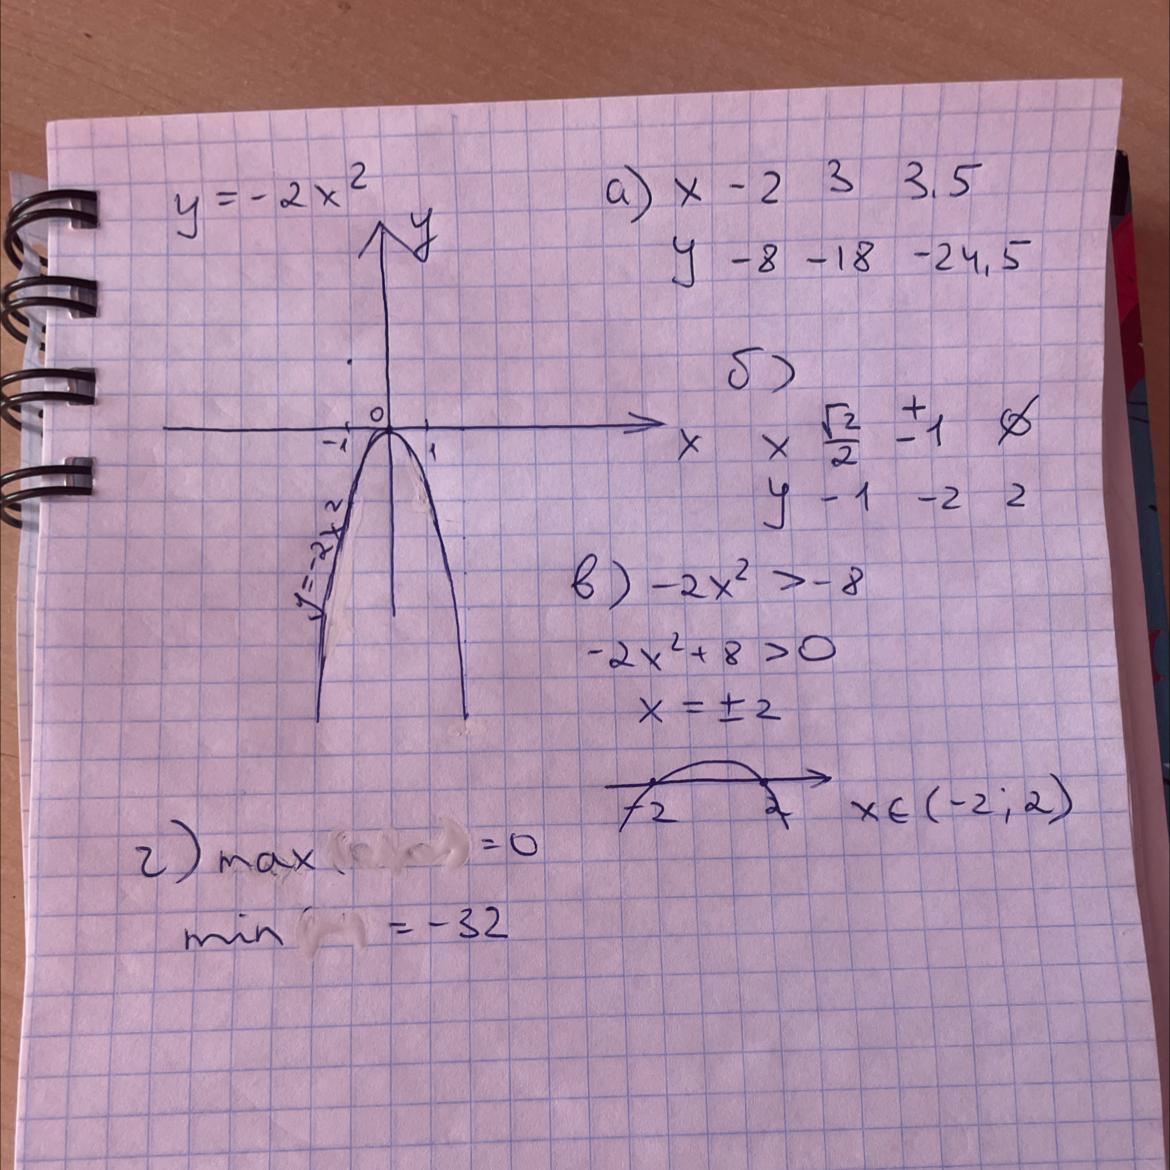 y = -2x²
y
0
-1
1
x
y = -2x²
а) x -2 3 3,5
y -8 -18 -24,5
б)
x √2/2 ±1 ∅
y -1 -2 2
в) -2x² > -8
-2x² + 8 > 0
x = ±2
-2 2 x ∈ (-2; 2)
г) max = 0
min = -32